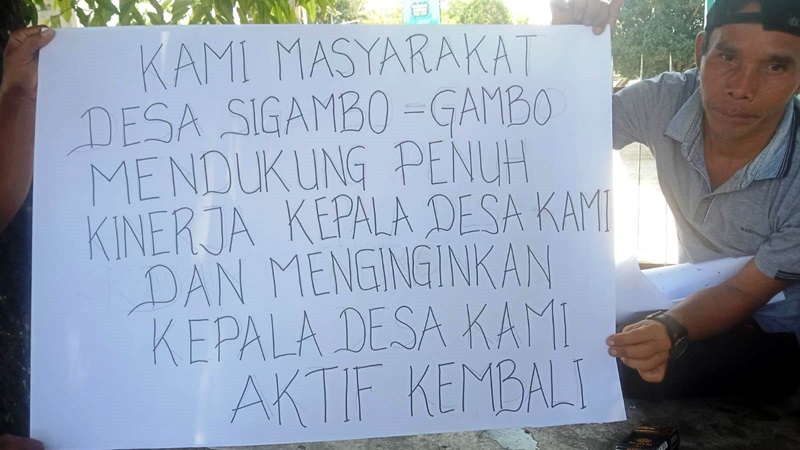 KAMI MASYARAKAT
DESA SIGAMBO=GAMBO
MENDUKUNG PENUH
KINERJA KEPALA DESA KAMI
DAN MENGINGINKAN
KEPALA DESA KAMI
AKTIF KEMBALI